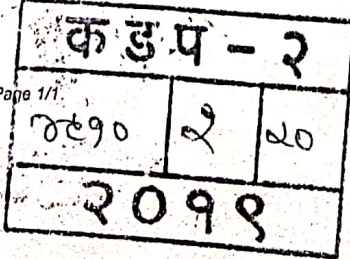 कडप - २
Page 1/1
७८१० २ २०
२०१९